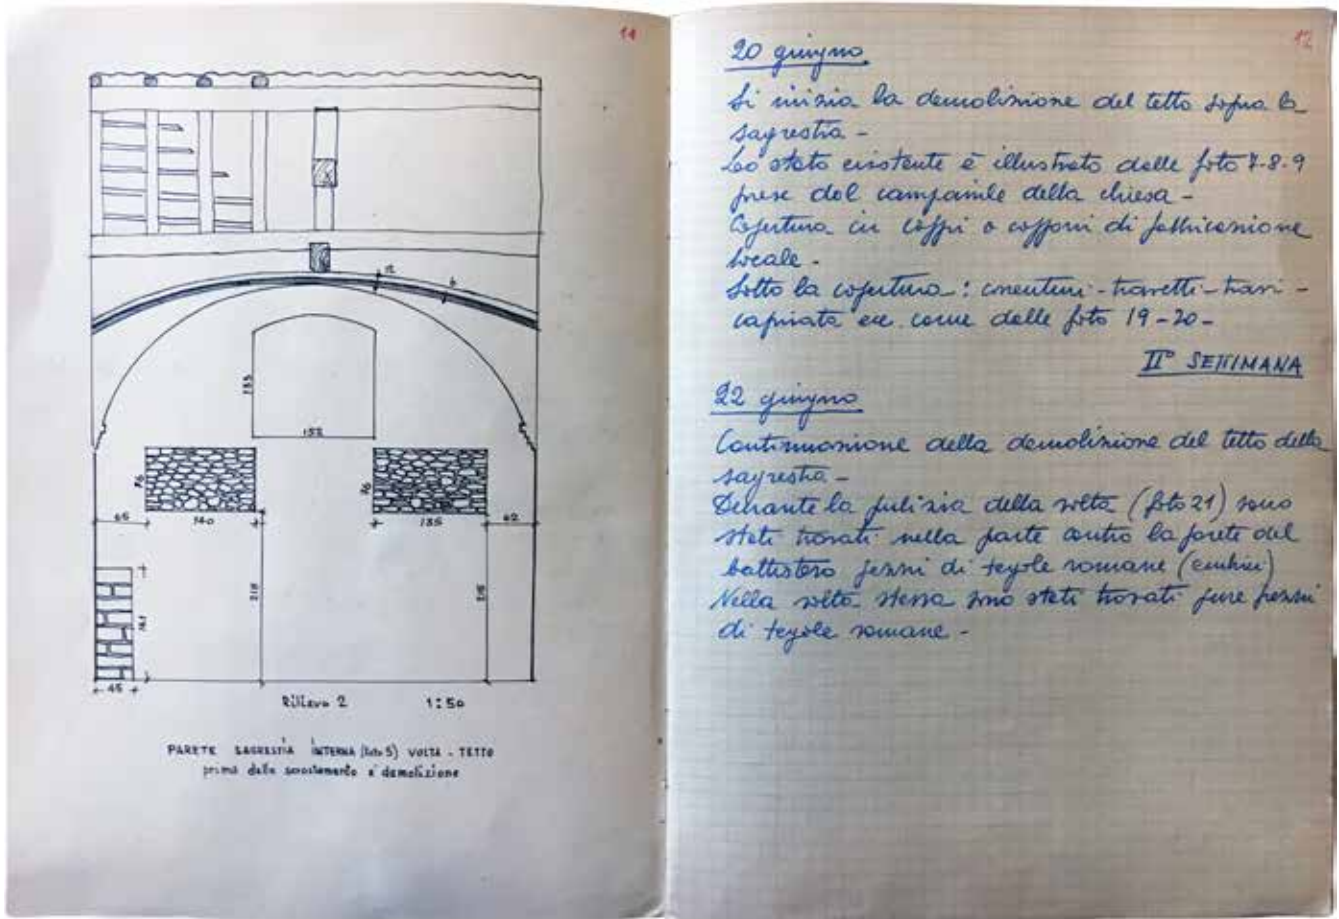 11
12
6
133
152
76
76
65
140
135
62
210
210
141
45
Rilievo 2 1:50
PARETE SAGRESTIA INTERNA (foto 5) VOLTA - TETTO
prima dello scrostamento e demolizione
12
20 giugno
Si inizia la demolizione del tetto sopra la
sagrestia -
Lo stato esistente è illustrato dalle foto 7-8-9
prese dal campanile della chiesa -
Copertura in coppi o copponi di fabbricazione
locale -
Sotto la copertura: - travetti - travi -
capriata ecc. come dalle foto 19-20-
IIº SETTIMANA
22 giugno
Continuazione della demolizione del tetto della
sagrestia -
Durante la pulizia della volta (foto 21) sono
stati trovati nella parte contro la parete del
battistero pezzi di tegole romane (embrici)
Nella volta stessa sono stati trovati pure pezzi
di tegole romane -